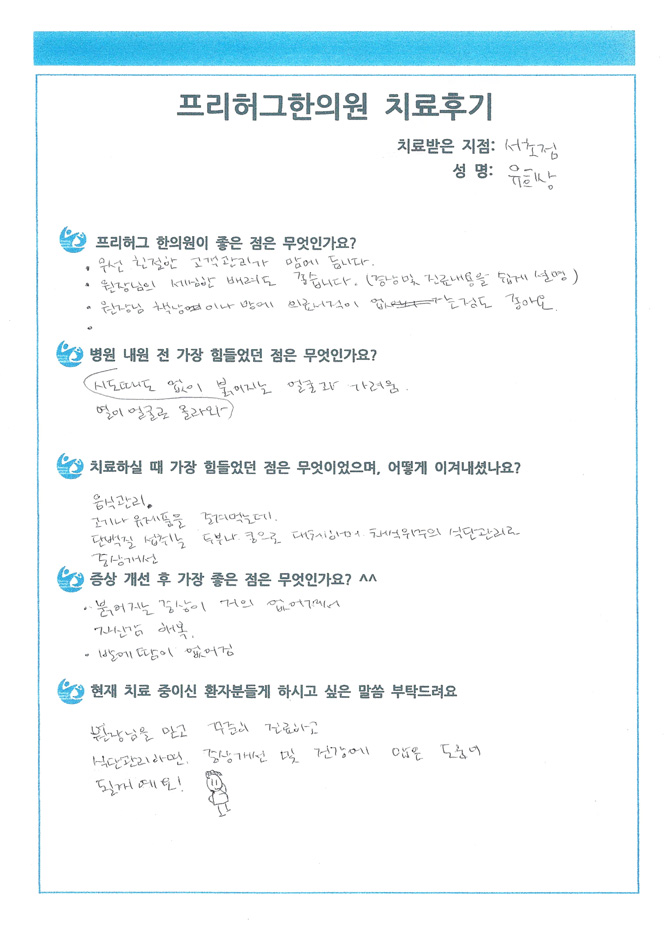 프리허그한의원 치료후기
치료받은 지점: 서초점
성 명: 유희상
프리허그 한의원이 좋은 점은 무엇인가요?
• 우선 친절한 고객관리가 맘에 듭니다.
• 원장님의 세심한 배려도 좋습니다. (증상및 진료내용을 쉽게 설명)
• 원장님 책상 이나 방에 의료서적이 는점도 좋아요.
•
병원 내원 전 가장 힘들었던 점은 무엇인가요?
시도때도 없이 붉어지는 얼굴과 가려움.
열이 얼굴로 올라와
치료하실 때 가장 힘들었던 점은 무엇이었으며, 어떻게 이겨내셨나요?
음식관리.
고기나 유제품을 즐겨먹는데.
단백질 섭취는 두부나 콩으로 대체하며 채식위주의 식단관리로
증상개선
증상 개선 후 가장 좋은 점은 무엇인가요? ^^
• 붉어지는 증상이 거의 없어져서
자신감 회복.
• 발에 땀이 없어짐
현재 치료 중이신 환자분들게 하시고 싶은 말씀 부탁드려요
원장님을 믿고 꾸준히 진료하고
식단관리하면. 증상개선 및 건강에 많은 도움이
될거예요!